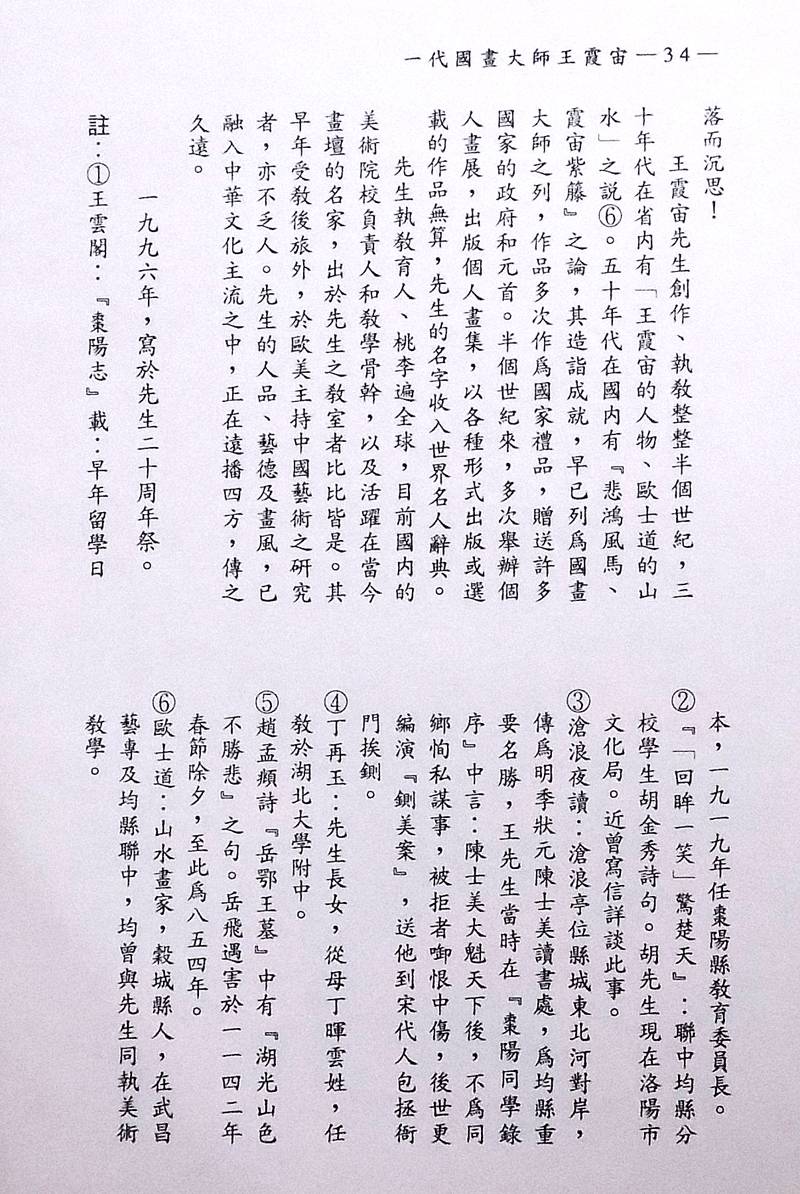 一代國畫大師王霞宙—34—
落而沉思！
王霞宙先生創作、執教整整半個世紀，三
十年代在省内有「王霞宙的人物、歐士道的山
水」之説⑥。五十年代在國内有『悲鴻風馬、
霞宙紫藤』之論，其造詣成就，早已列爲國畫
大師之列，作品多次作爲國家禮品，贈送許多
國家的政府和元首。半個世紀來，多次舉辦個
人畫展，出版個人畫集，以各種形式出版或選
載的作品無算，先生的名字收入世界名人辭典。
先生執教育人、桃李遍全球，目前國内的
美術院校負責人和教學骨幹，以及活躍在當今
畫壇的名家，出於先生之教室者比比皆是。其
早年受教後旅外，於歐美主持中國藝術之研究
者，亦不乏人。先生的人品、藝德及畫風，已
融入中華文化主流之中，正在遠播四方，傳之
久遠。
一九九六年，寫於先生二十周年祭。
註：①王雲閣：『棗陽志』載：早年留學日
本，一九一九年任棗陽縣教育委員長。
②『「回眸一笑」驚楚天』：聯中均縣分
校學生胡金秀詩句。胡先生現在洛陽市
文化局。近曾寫信詳談此事。
③滄浪夜讀：滄浪亭位縣城東北河對岸，
傳爲明季狀元陳士美讀書處，爲均縣重
要名勝，王先生當時在『棗陽同學錄
序』中言：陳士美大魁天下後，不爲同
鄉恂私謀事，被拒者啣恨中傷，後世更
編演『鍘美案』，送他到宋代人包拯衙
門挨鍘。
④丁再玉：先生長女，從母丁暉雲姓，任
教於湖北大學附中。
⑤趙孟頫詩『岳鄂王墓』中有『湖光山色
不勝悲』之句。岳飛遇害於一一四二年
春節除夕，至此爲八五四年。
⑥歐士道：山水畫家，穀城縣人，在武昌
藝專及均縣聯中，均曾與先生同執美術
教學。